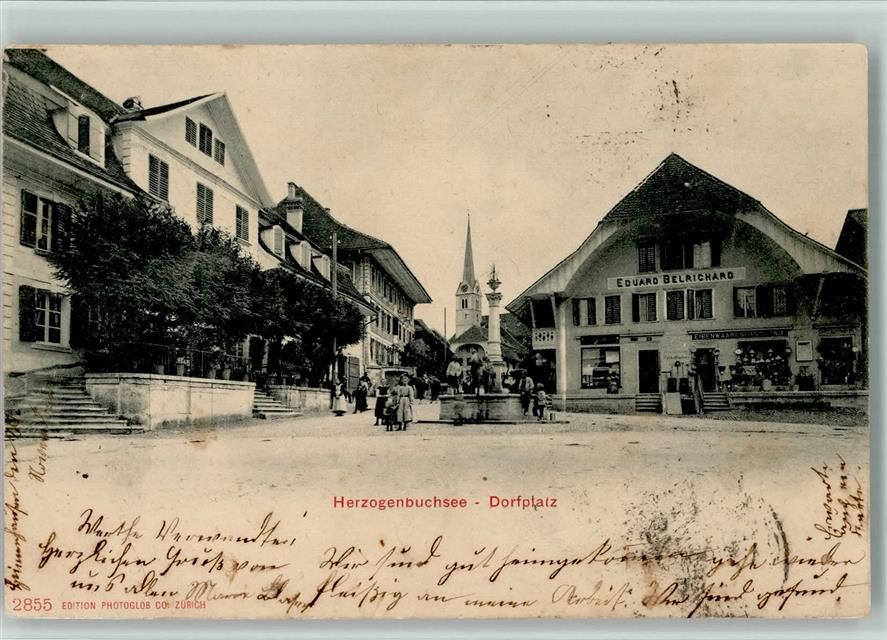 EDUARD BELRICHARD
EISENWAARENHANDLUNG
Herzogenbuchsee - Dorfplatz
Werthe Verwandter,
Herzlichen Gruss von
uns allen
Wir sind gut heimgekommen gehe wieder
fleissig an meine Arbeit. Wir sind gesund.
2855 EDITION PHOTOGLOB CO. ZÜRICH